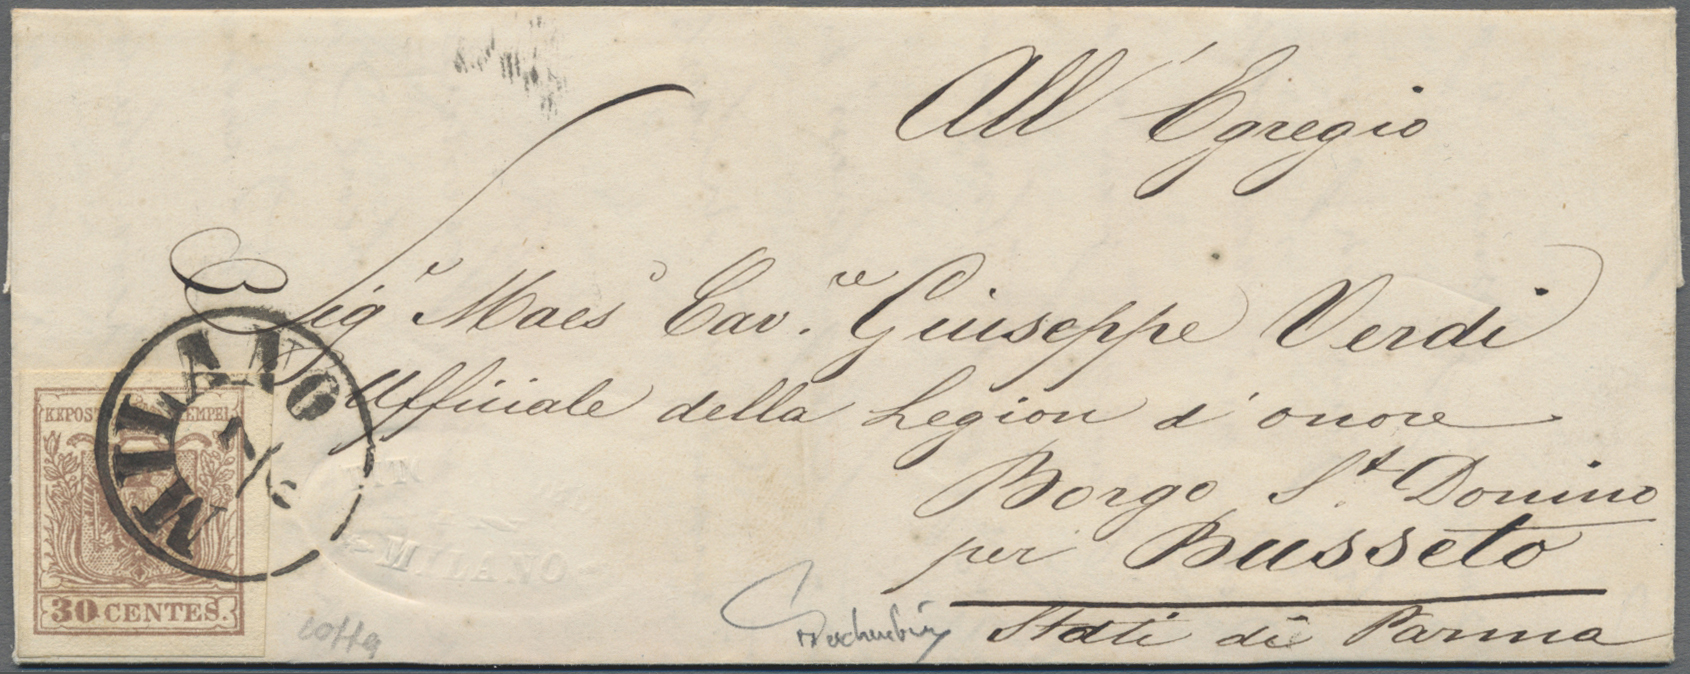 All' Egregio
Sig.r Maes.o Cav.re Giuseppe Verdi
Ufficiale della Legion d'onore
Borgo S.t Donino
per Busseto
Stati di Parma
MILANO
7/6
KKPOST STEMPEL
30 CENTES.
MILANO